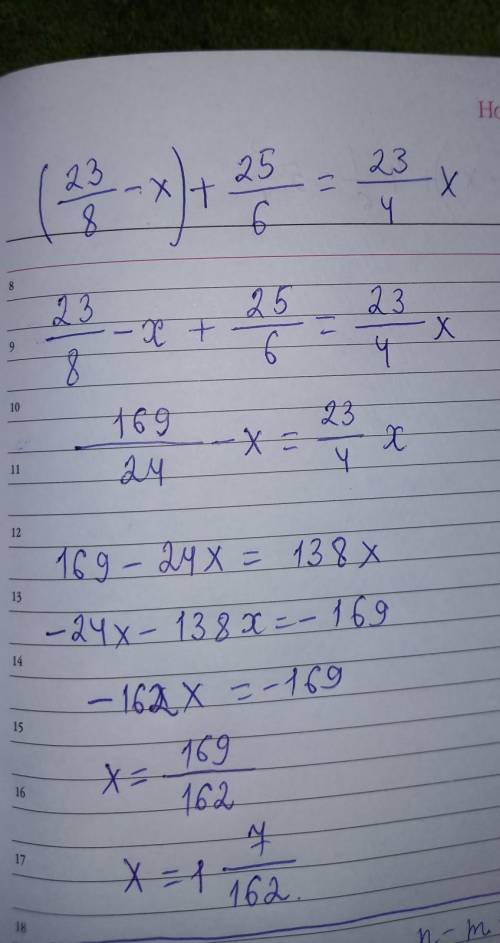 Ho
(23/8 - x) + 25/6 = 23/4 x
8
23/8 - x + 25/6 = 23/4 x
9
169/24 - x = 23/4 x
10
11
12
169 - 24x = 138x
13
-24x - 138x = -169
14
-162x = -169
15
x = 169/162
16
17
x = 1 7/162.
18
n - m